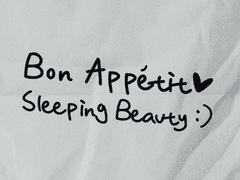 Bon Appétit♥
Sleeping Beauty :)